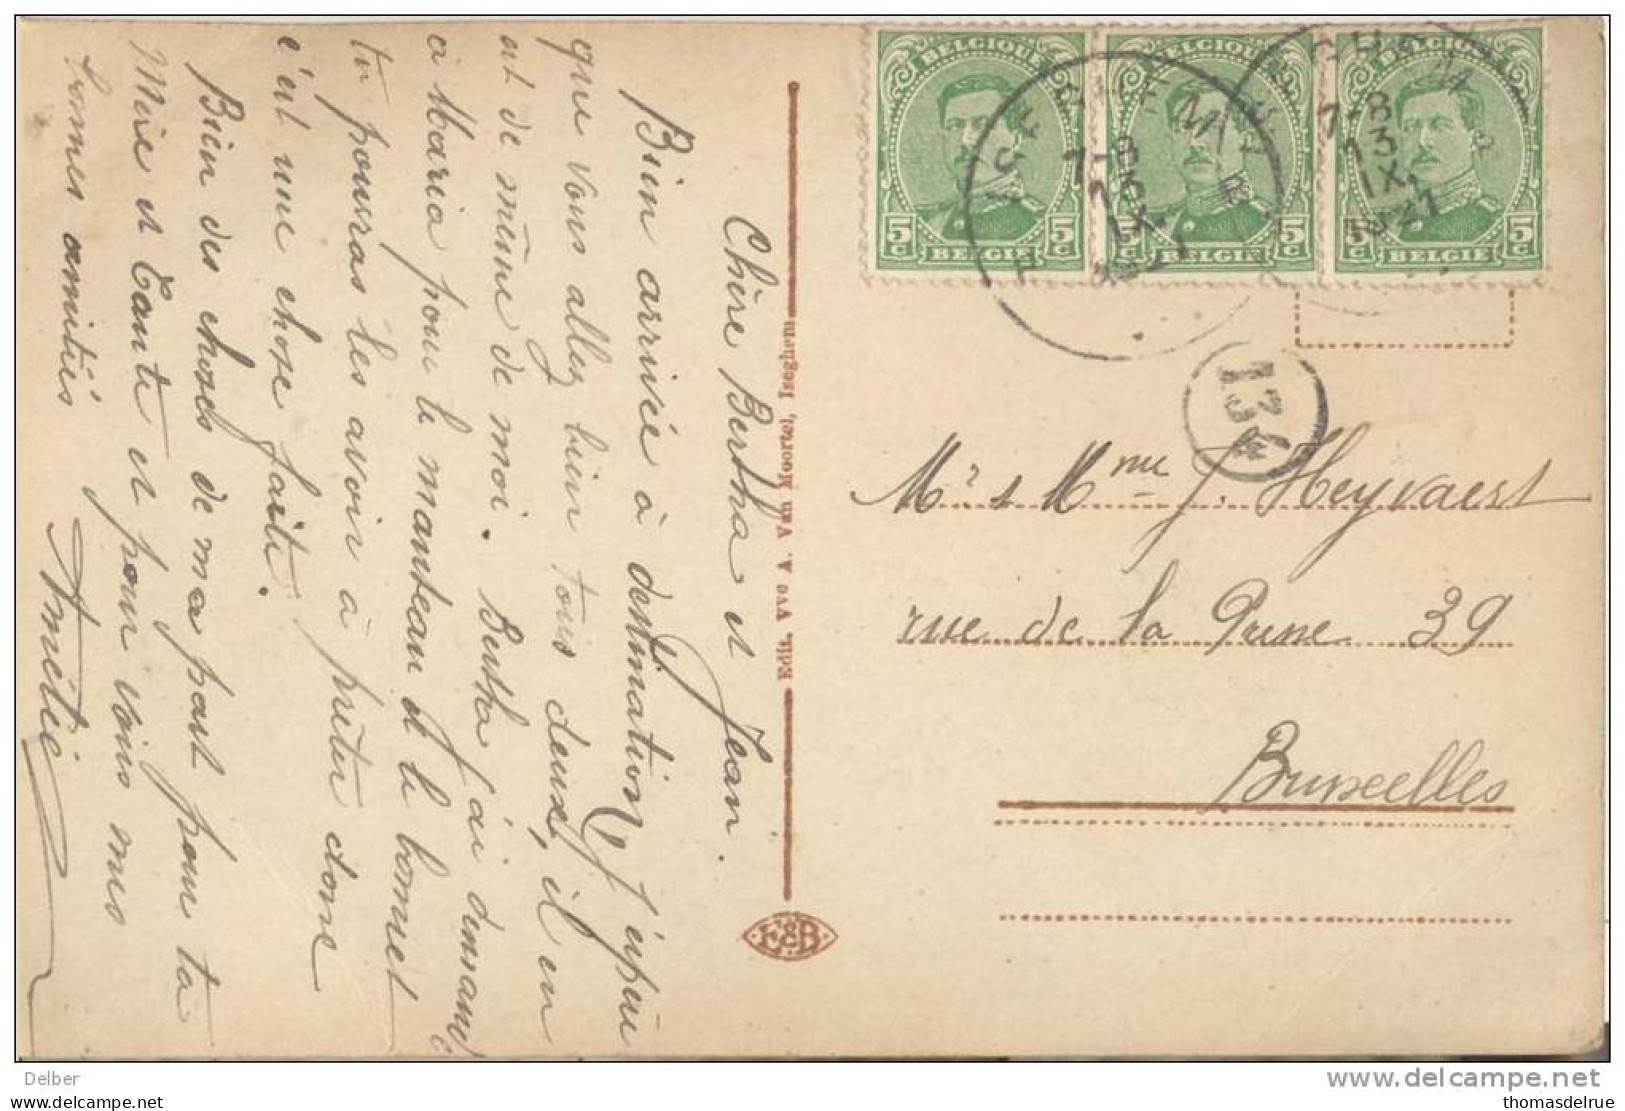 Chère Bertha et Jean.
Bien arrivée à destination, J'espère
que vous allez bien tous deux, il en
est de même de moi. Bertha j'ai demandé
à Maria pour le manteau et le bonnet
tu pourras les avoir à prêter donc
c'est une chose faite.
Bien des choses de ma part pour ta
Mère et Tante et pour vous mes
bonnes amitiés
Amélie
Edit. Vve A. Van Moortel, Iseghem
E&B
BELGIQUE
5c
5c
BELGIE
BELGIQUE
5c
BELGIE
BELGIQUE
5c
BELGIE
7-8
13
IX
1921
134
Mr & Mme J. Heyvaert
rue de la Prune 39
Bruxelles
Delber
www.delcampe.net
thomasdelrue